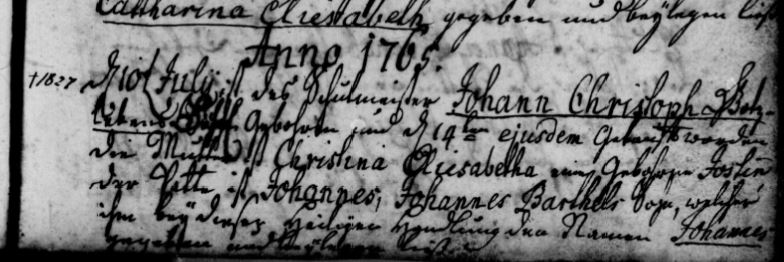 Catharina Eliesabeth gegeben und beÿlegen ließ
Anno 1765.
†1827 d 10t Julÿ ist des Schulmeister Johann Christoph
Sohn Gebohren und d 14ten ejusdem Getauft worden
die Mutter ist Christina Eliesabetha eine Gebohrne Jostin
der Pette ist Johannes, Johannes Barthels Sohn, welcher
ihm beÿ dieser Heiligen Handlung den Namen Johannes
gegeben und beÿlegen